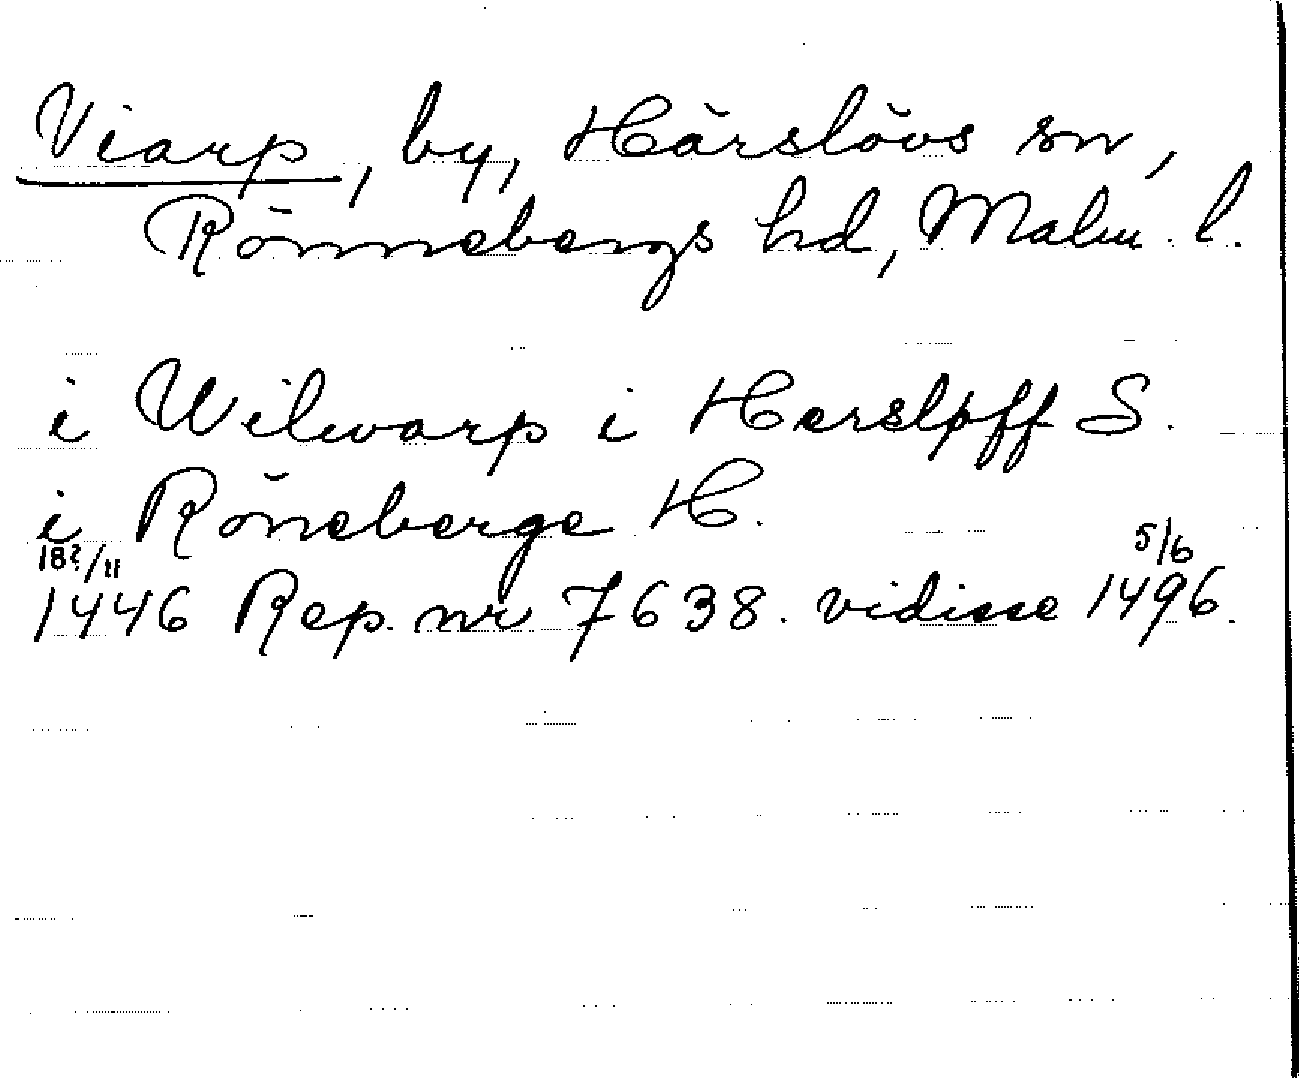 Viarp, by, Härslövs sn,
Rönnebergs hd, Malm. l.
i Wilwarp i Herslpff S.
i Röneberge H.
18?/11 5/6
1446 Rep. nr 7638. vidisse 1496.